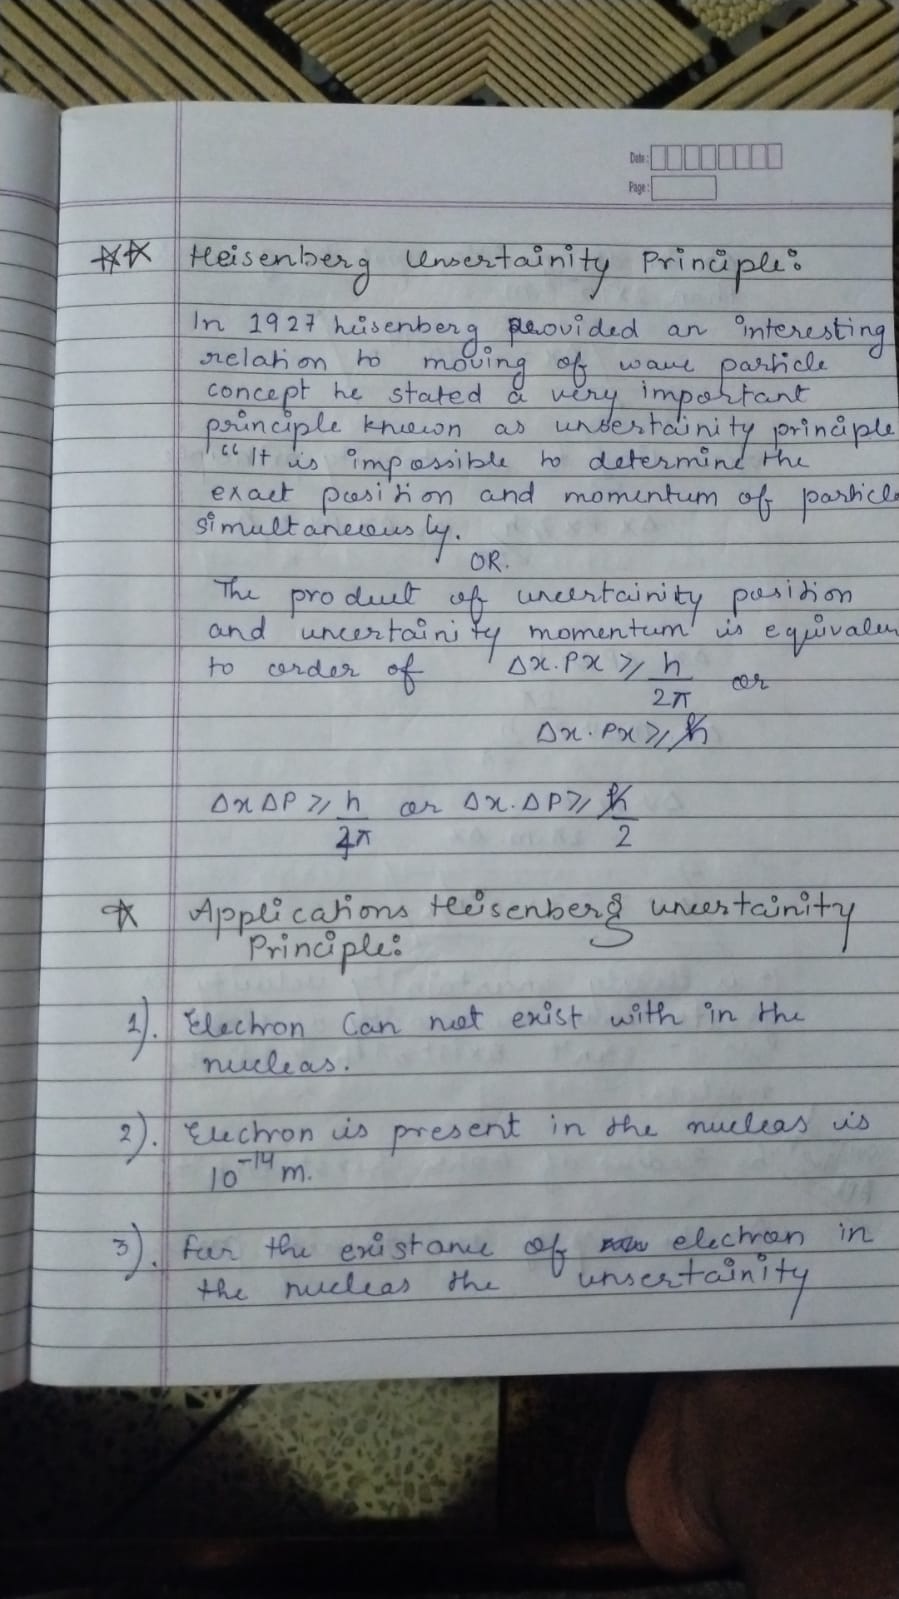 Date:
Page:
Heisenberg Unsertainity Principle:
In 1927 heisenberg provided an interesting
relation to moving of wave particle
concept he stated a very important
principle known as unsertainity principle
"It is impossible to determine the
exact position and momentum of particle
simultaneously.
OR.
The product of uncertainity position
and uncertainity momentum is equivalen
to order of Δx.Px ≥ h/2π or
Δx.Px ≥ ħ
ΔxΔP ≥ h/4π or Δx.ΔP ≥ ħ/2
Applications Heisenberg uncertainity
Principle:
1). Electron Can not exist with in the
nucleas.
2). Electron is present in the nucleas is
10⁻¹⁴ m.
3). For the existance of electron in
the nucleas the unsertainity